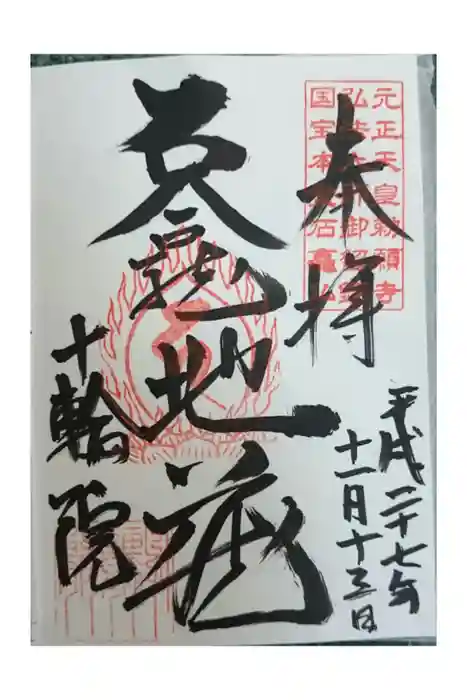 元正天皇勅願寺
弘法大師御
国宝本尊石龕仏
奉拝
平成二十七年
十一月十三日
石龕地蔵
十輪院